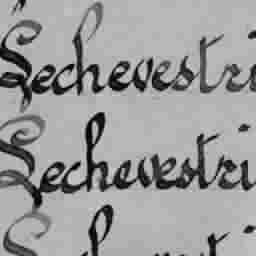 Lechevestri
Lechevestri